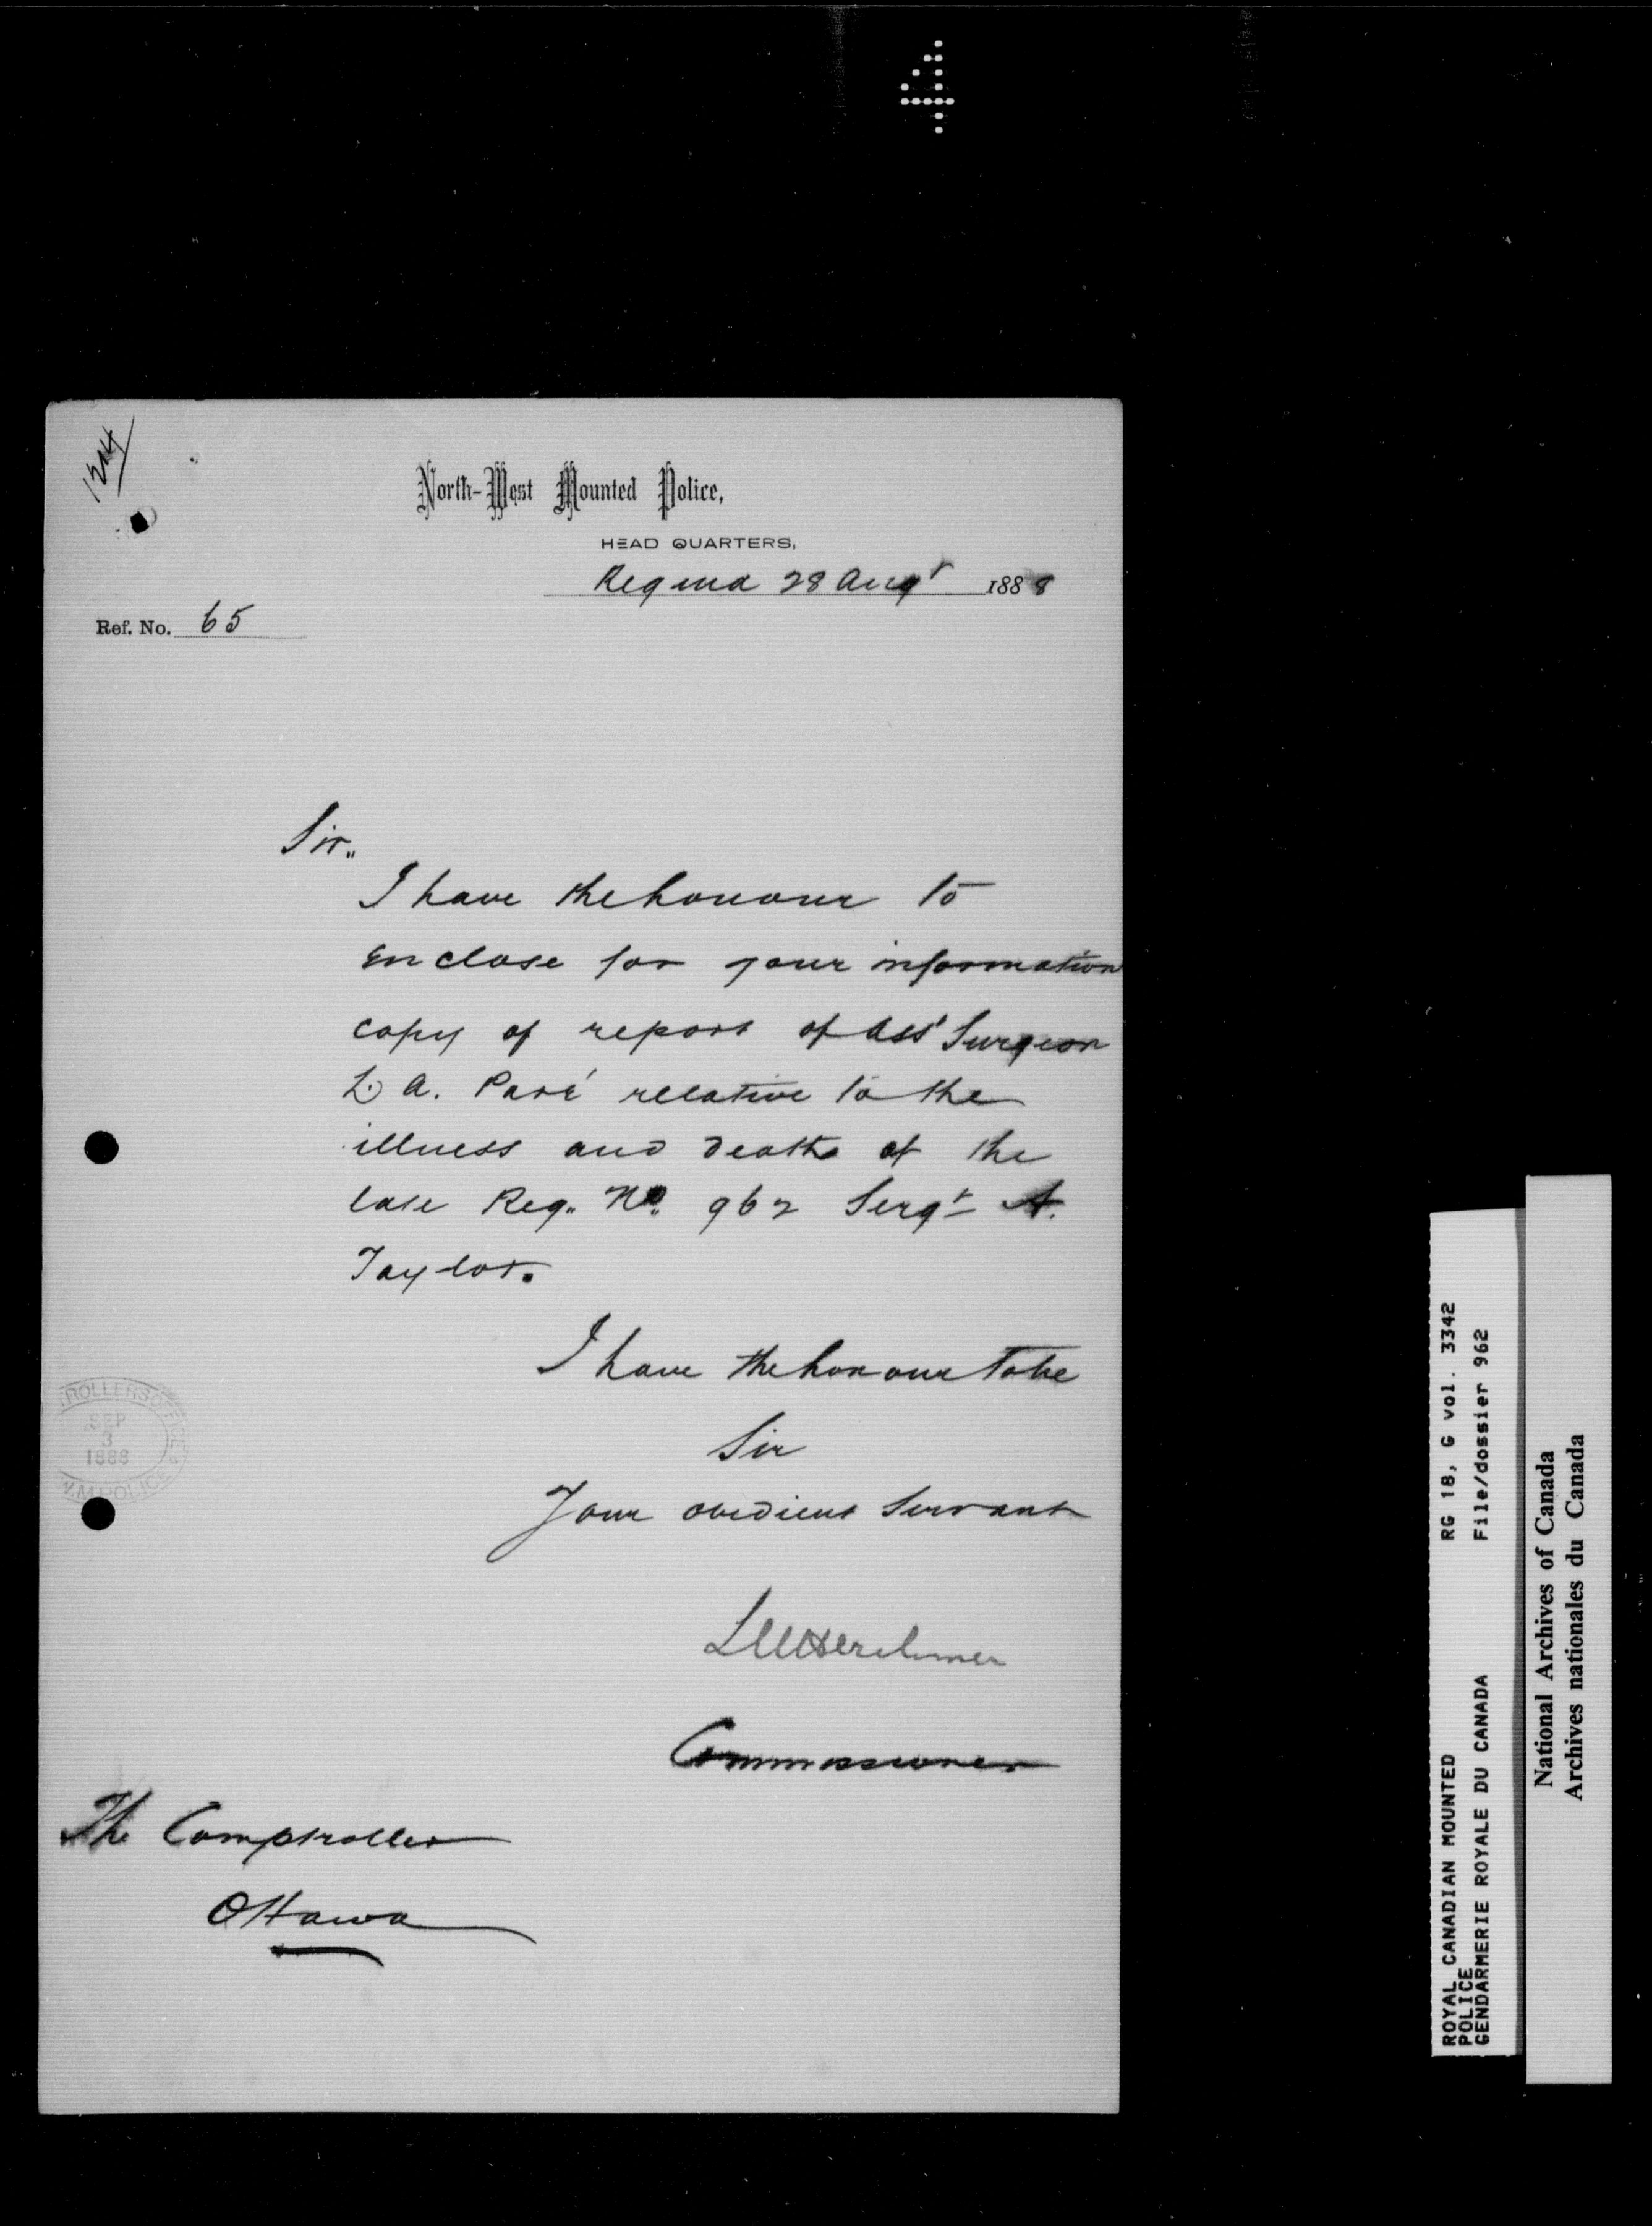 4
1244
North-West Mounted Police,
HEAD QUARTERS,
Regina 28 Augt 1888
Ref. No. 65
Sir..
I have the honour to
enclose for your information
copy of report of Asst Surgeon
L. A. Paré relative to the
illness and death of the
late Reg. No. 962 Sergt A.
Taylor.
I have the honour to be
Sir
Your obedient Servant
LWHerchmer
Commissioner
The Comptroller
Ottawa
ROLLERS OFFICE
SEP
3
1888
W.M.POLICE
ROYAL CANADIAN MOUNTED RG 18, G vol. 3342
POLICE
GENDARMERIE ROYALE DU CANADA File/dossier 962
National Archives of Canada
Archives nationales du Canada